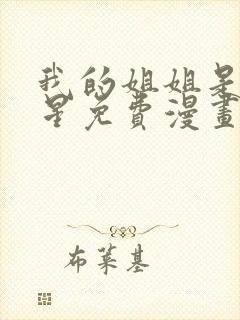 我的姐姐是
星免费漫畫
布莱基